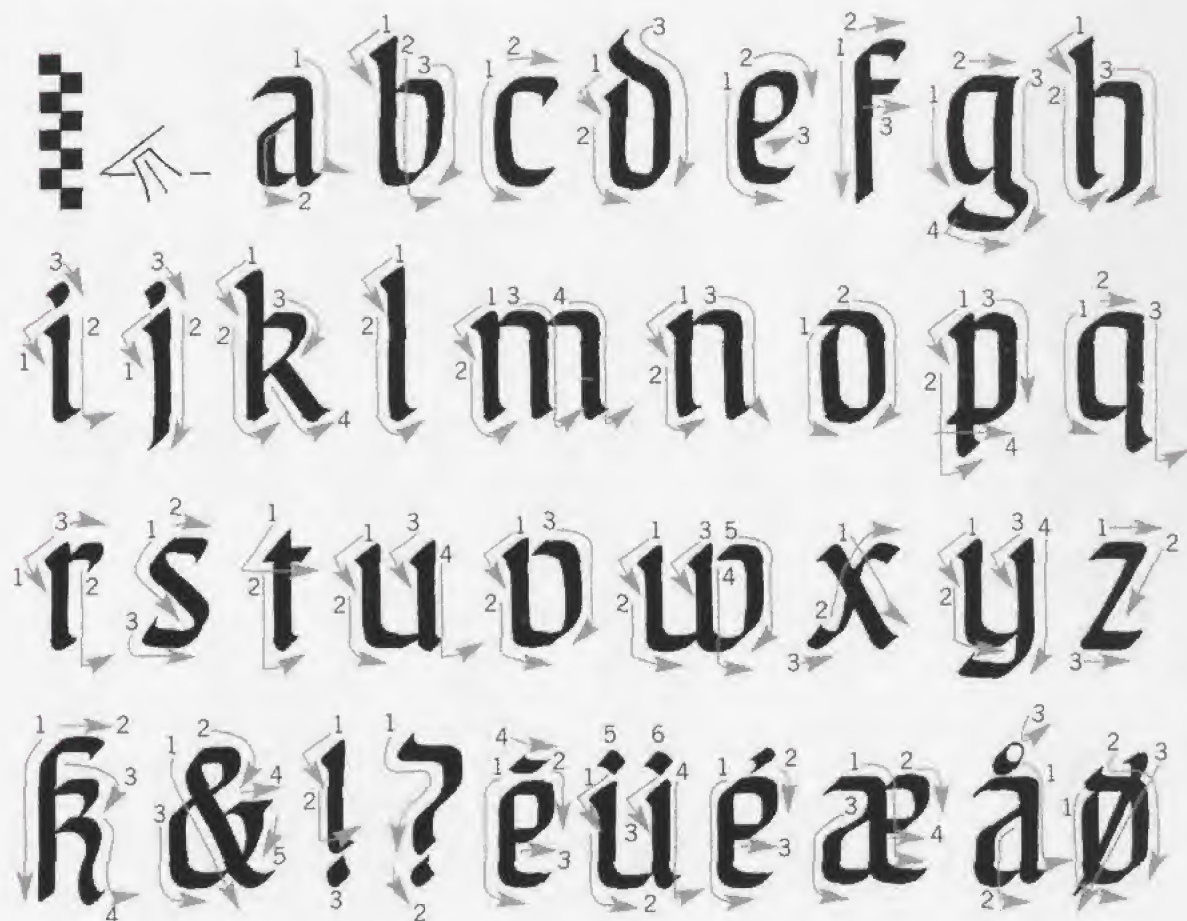 a b c d e f g h
i j k l m n o p q
r s t u v w x y z
k & ! ? ē ü é æ å ø